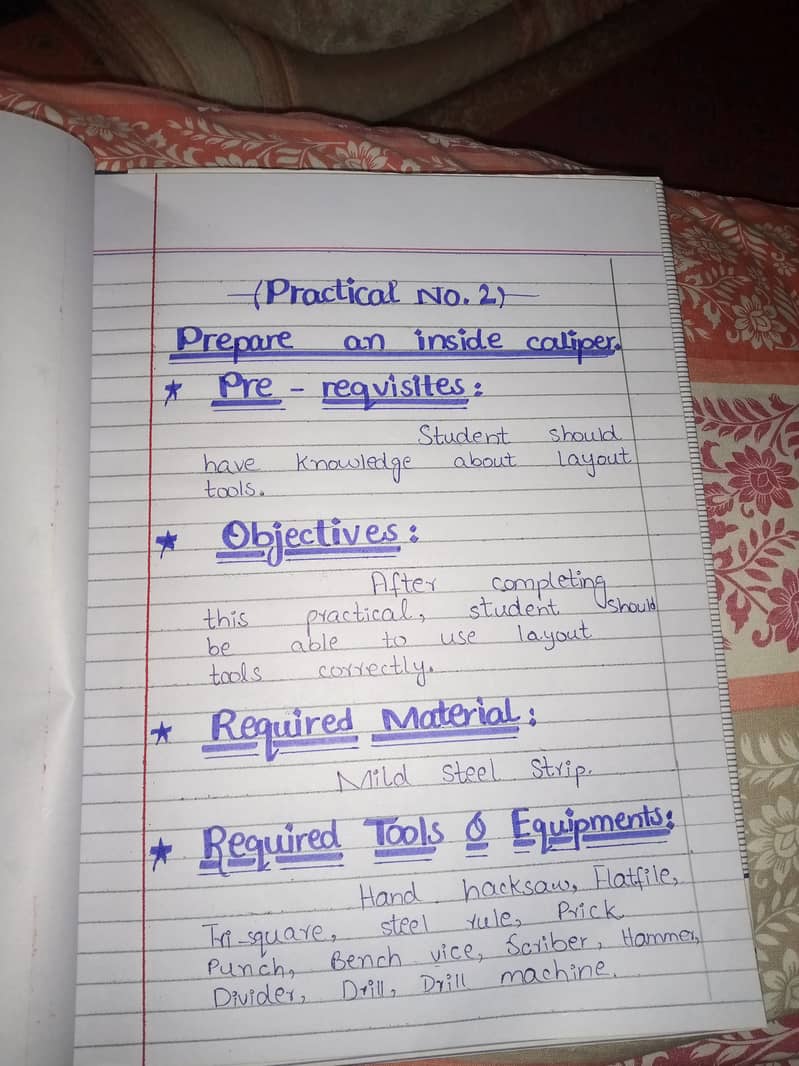 (Practical No. 2)
Prepare an inside caliper.
★ Pre - requisites:
Student should
have Knowledge about layout
tools.
★ Objectives:
After completing
this practical, student should
be able to use layout
tools correctly.
★ Required Material:
Mild Steel Strip.
★ Required Tools & Equipments:
Hand hacksaw, Flatfile,
Tri-square, steel rule, Prick
Punch, Bench vice, Scriber, Hammer,
Divider, Drill, Drill machine.